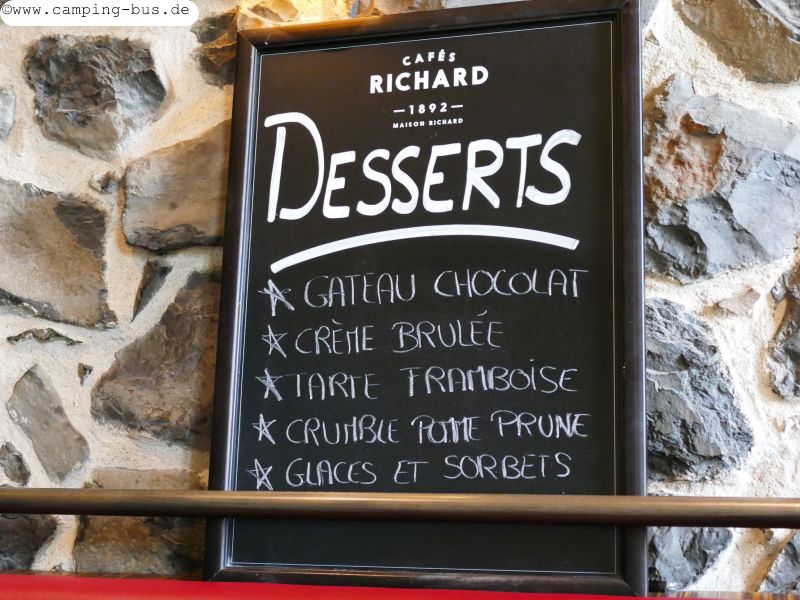 ©www.camping-bus.de
CAFÉS
RICHARD
—1892—
MAISON RICHARD
DESSERTS
☆ GATEAU CHOCOLAT
☆ CRÈME BRULÉE
☆ TARTE FRAMBOISE
☆ CRUMBLE POMME PRUNE
☆ GLACES ET SORBETS